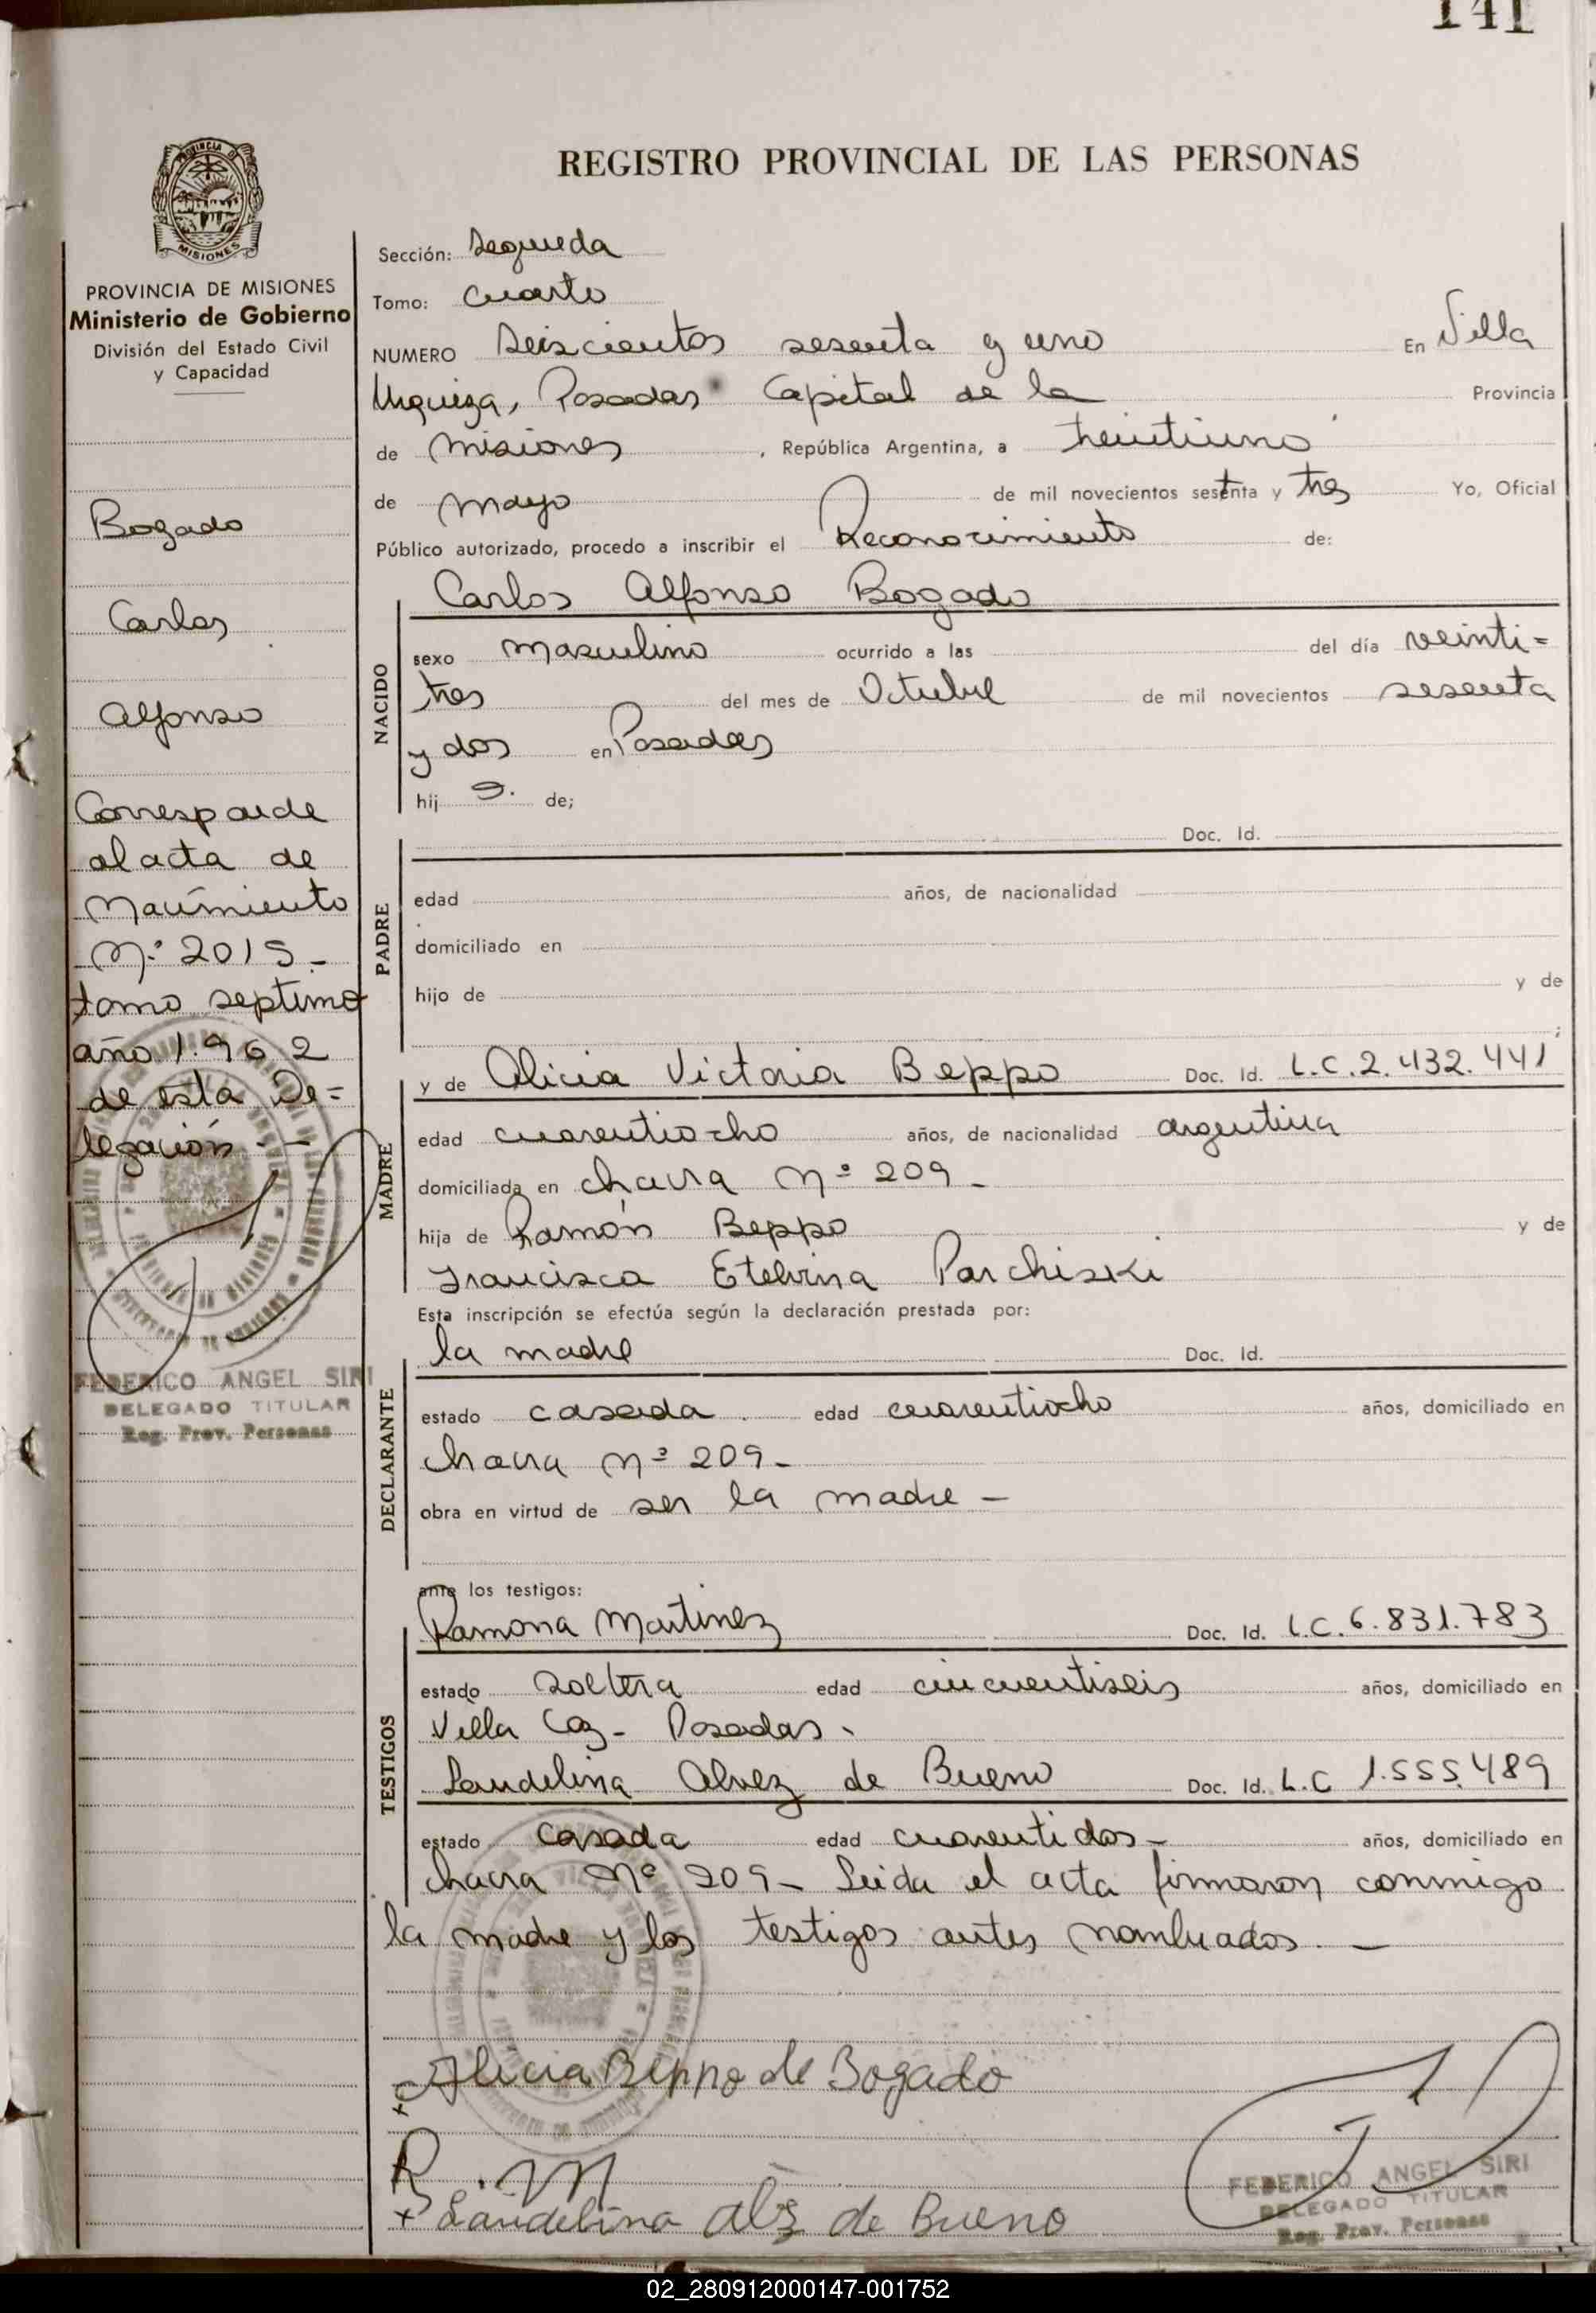 141
REGISTRO PROVINCIAL DE LAS PERSONAS
PROVINCIA DE MISIONES
Ministerio de Gobierno
División del Estado Civil
y Capacidad
Bogado
Carlos
Alfonso
Corresponde
al acta de
Nacimiento
N.º 2015.-
tomo septimo
año 1.962
de esta De=
legación.-
FEDERICO ANGEL SIRI
DELEGADO TITULAR
Reg. Prov. Personas
Sección: Segunda
Tomo: Cuarto
NUMERO Seiscientos sesenta y uno En Villa
Urquiza, Posadas Capital de la Provincia
de Misiones, República Argentina, a treintiuno
de Mayo de mil novecientos sesenta y tres Yo, Oficial
Público autorizado, procedo a inscribir el Reconocimiento de:
Carlos Alfonso Bogado
NACIDO
sexo Masculino ocurrido a las del día veinti=
tres del mes de Octubre de mil novecientos sesenta
y dos en Posadas
hij o. de;
Doc. Id.
PADRE
edad años, de nacionalidad
domiciliado en
hijo de y de
;
MADRE
y de Alicia Victoria Beppo Doc. Id. L.C.2.432.441
edad cuarentiocho años, de nacionalidad argentina
domiciliada en chacra Nº 209-
hija de Ramón Beppo y de
Francisca Etelvina Parchiski
Esta inscripción se efectúa según la declaración prestada por:
la madre Doc. Id.
DECLARANTE
estado casada edad cuarentiocho años, domiciliado en
chacra Nº 209-
obra en virtud de ser la madre -
ante los testigos:
TESTIGOS
Ramona Martinez Doc. Id. L.C.6.831.783
estado soltera edad cincuentiseis años, domiciliado en
Villa Coz- Posadas.
Laudelina Alvez de Bueno Doc. Id. L.C 1.555.489
estado casada edad cuarentidos- años, domiciliado en
chacra Nº 209- Leida el acta firmaron conmigo
la madre y los testigos antes nombrados. -
Alicia Beppo de Bogado
R. M
Laudelina Alz de Bueno
FEDERICO ANGEL SIRI
DELEGADO TITULAR
Reg. Prov. Personas
02_280912000147-001752